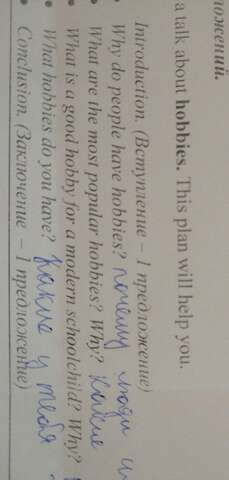 ложений.
a talk about hobbies. This plan will help you.
Introduction. (Вступление – 1 предложение)
• Why do people have hobbies? почему люди
• What are the most popular hobbies? Why? какие
• What is a good hobby for a modern schoolchild? Why?
• What hobbies do you have? Какие у тебя
• Conclusion. (Заключение – 1 предложение)